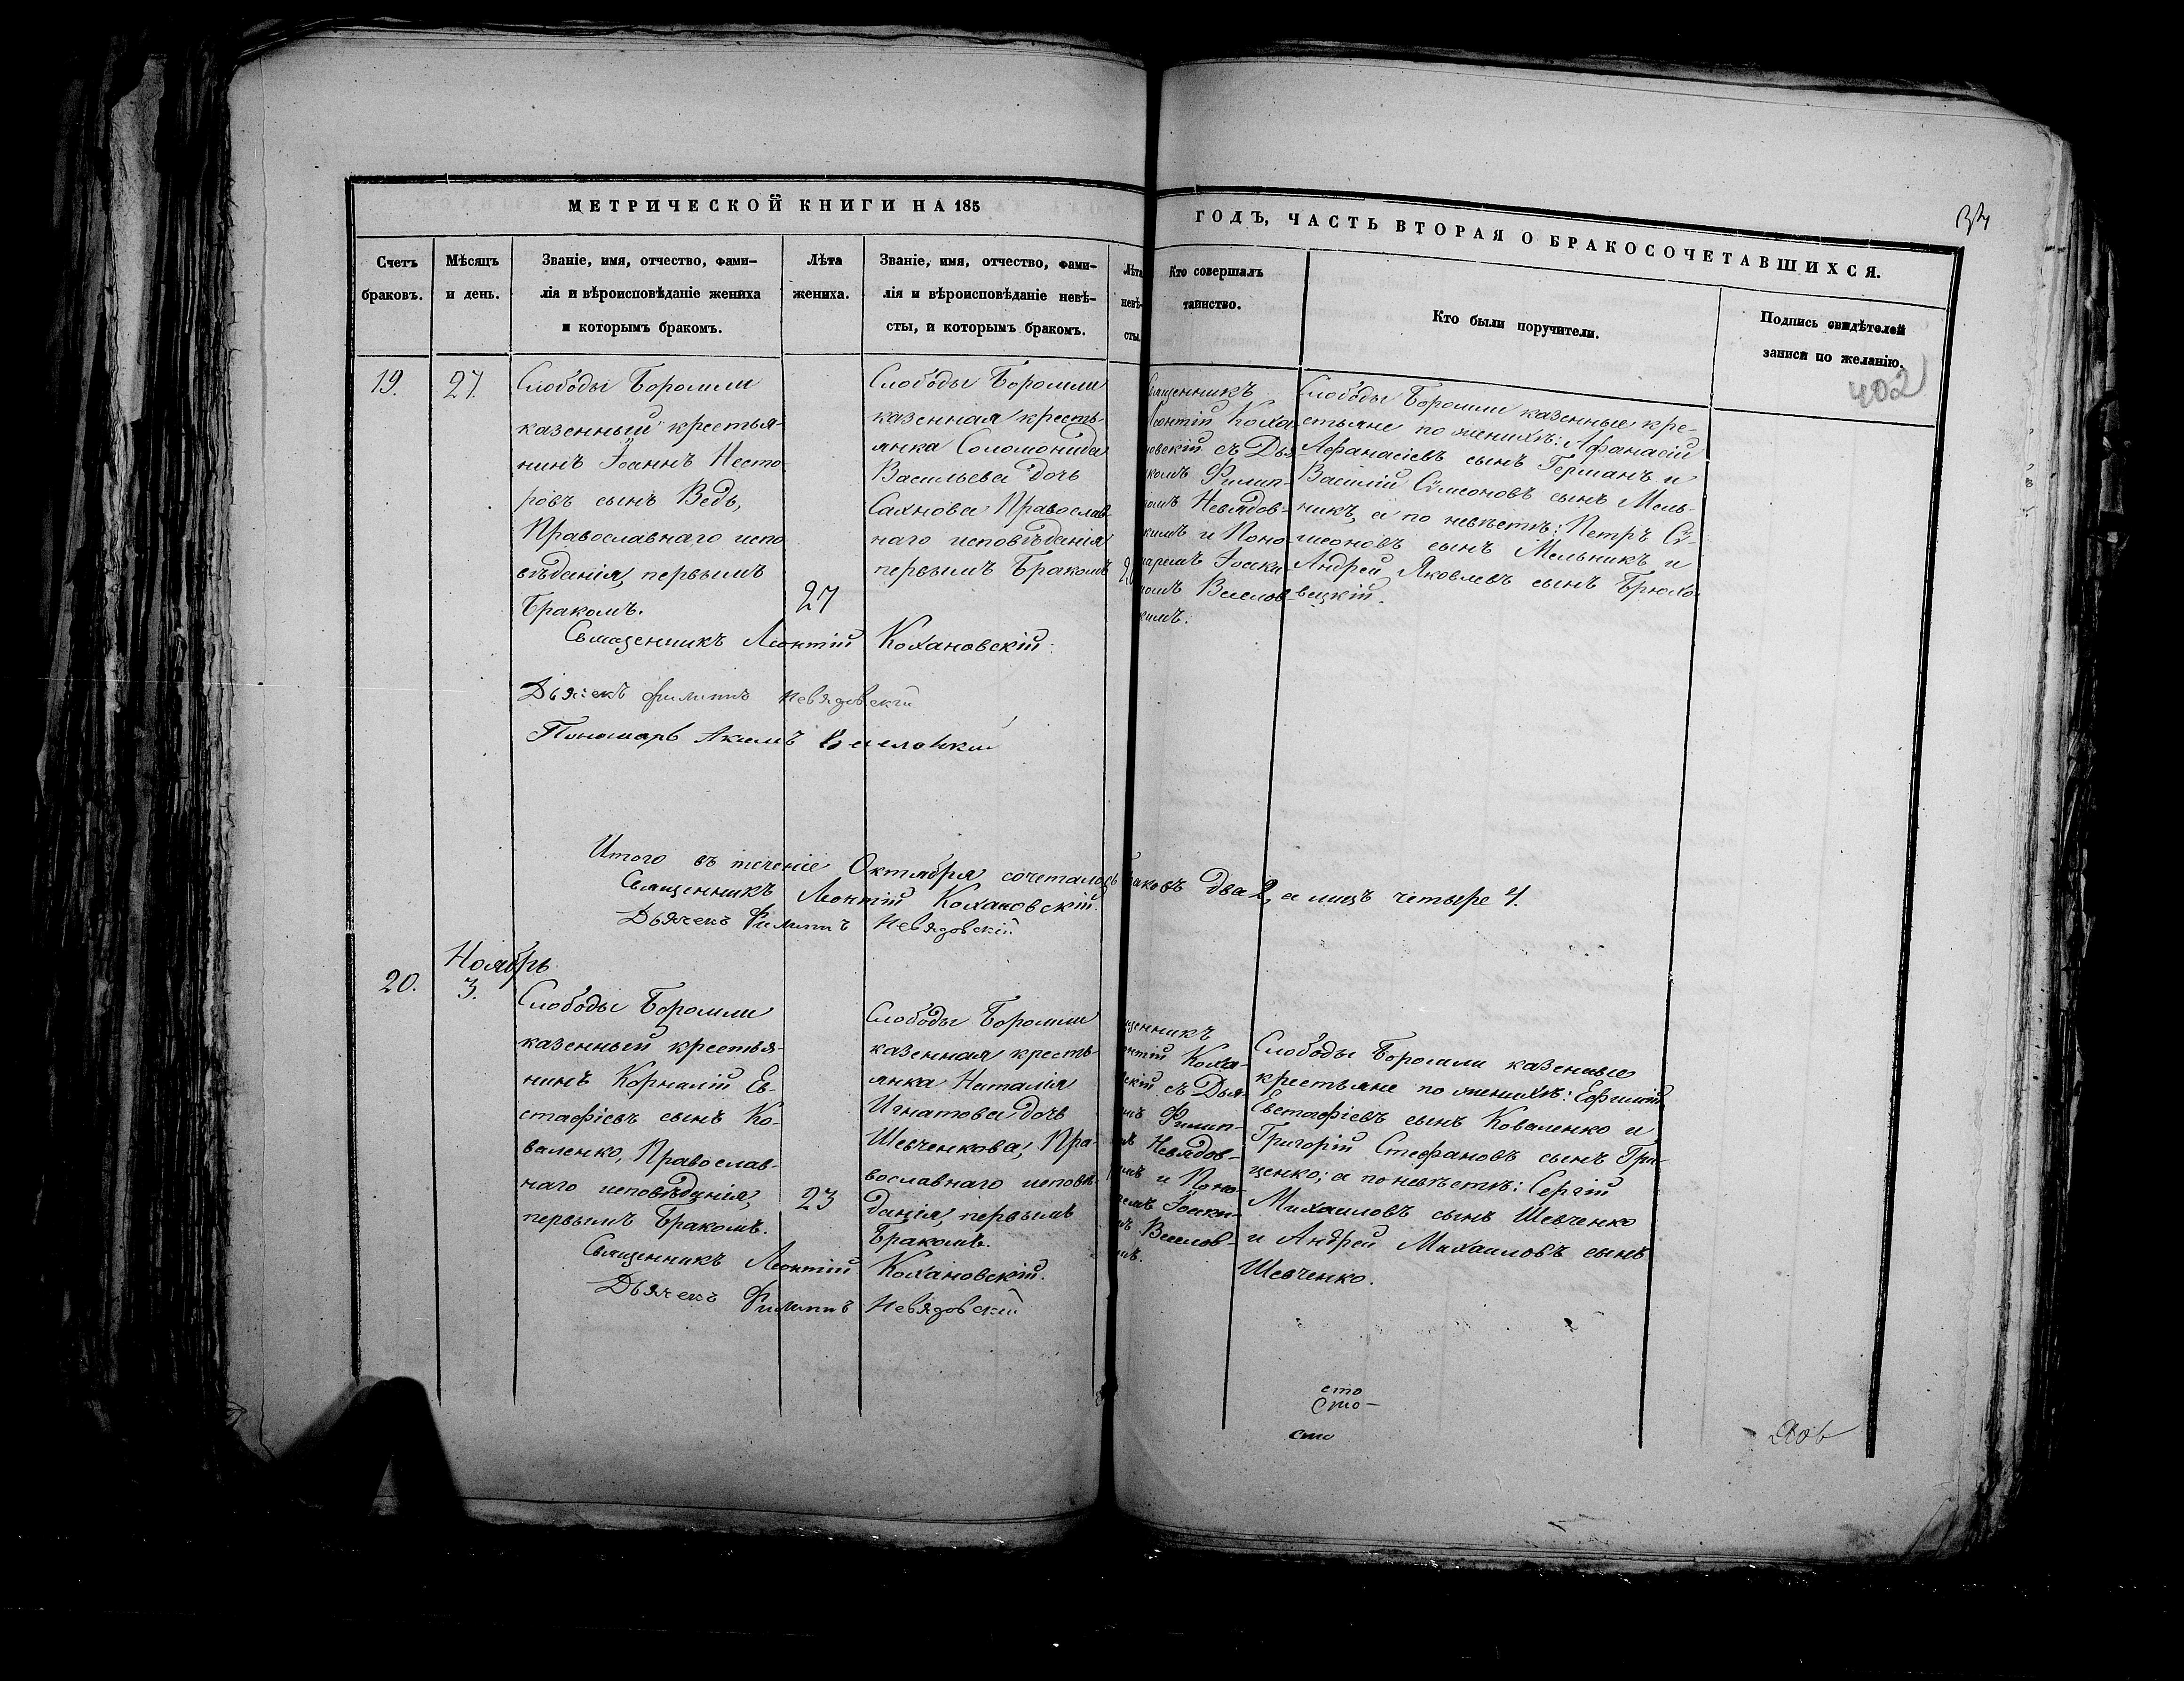 МЕТРИЧЕСКОЙ КНИГИ НА 185
ГОДЪ, ЧАСТЬ ВТОРАЯ О БРАКОСОЧЕТАВШИХСЯ.
Счетъ
браковъ.
Мѣсяцъ
и день.
Званіе, имя, отчество, фами-
лія и вѣроисповѣданіе жениха
и которымъ бракомъ.
Лѣта
жениха.
Званіе, имя, отчество, фами-
лія и вѣроисповѣданіе невѣ-
сты, и которымъ бракомъ.
Лѣта
невѣ-
сты.
Кто совершалъ
таинство.
Кто были поручители.
Подпись свидѣтелей
записи по желанію.
402
19.
27.
Слободы Боромли
казенный крестья-
нинъ Іоаннъ Несто-
ровъ сынъ Ведь,
Православнаго испо
вѣданія, первымъ
Бракомъ.
27
Слободы Боромли
казенная кресть-
янка Соломонида
Васильева дочь
Сахнова Православ-
наго исповѣданія
первымъ Бракомъ
Священникъ
Леонтій Коха
новскій съ Дья
комъ Филип-
помъ Невядов-
кимъ и Поно-
маремъ Іоаки
момъ Веселов
кимъ.
Слободы Боромли казенные кре-
стьяне по женихѣ: Афанасій
Афанасіевъ сынъ Германъ и
Василій Сѵмеоновъ сынъ Мель-
никъ, а по невѣстѣ: Петръ Сѵ-
меоновъ сынъ Мельникъ и
Андрей Яковлевъ сынъ Брюхо
вецкій.
Священникъ Леонтій Кохановскій.
Дьячекъ Филиппъ Невядовскій
Пономарь Акимъ Веселовскій
Итого въ теченіе Октября сочеталось браковъ два 2, а лицъ четыре 4.
Священникъ Леонтій Кохановскій.
Дьячекъ Филиппъ Невядовскій
Ноябрь
20.
3.
Слободы Боромли
казенный крестья-
нинъ Корнилій Ев-
стафіевъ сынъ Ко-
валенко, Православ-
наго исповѣданія,
первымъ Бракомъ.
23
Слободы Боромли
казенная кресть-
янка Наталія
Игнатова дочь
Шевченкова, Пра-
вославнаго исповѣ-
данія, первымъ
Бракомъ.
щенникъ
онтій Коха-
скій съ Дья-
мъ Филип-
мъ Невядов-
имъ и Поно-
емъ Іоаки-
мъ Веселов-
мъ.
Слободы Боромли казенные
крестьяне по женихѣ: Ефимій
Евстафіевъ сынъ Коваленко и
Григорій Стефановъ сынъ Гри-
ценко; а по невѣстѣ: Сергій
Михаиловъ сынъ Шевченко
и Андрей Михаиловъ сынъ
Шевченко.
Священникъ Леонтій Кохановскій.
Дьячекъ Филиппъ Невядовскій
сто
Сто-
сто